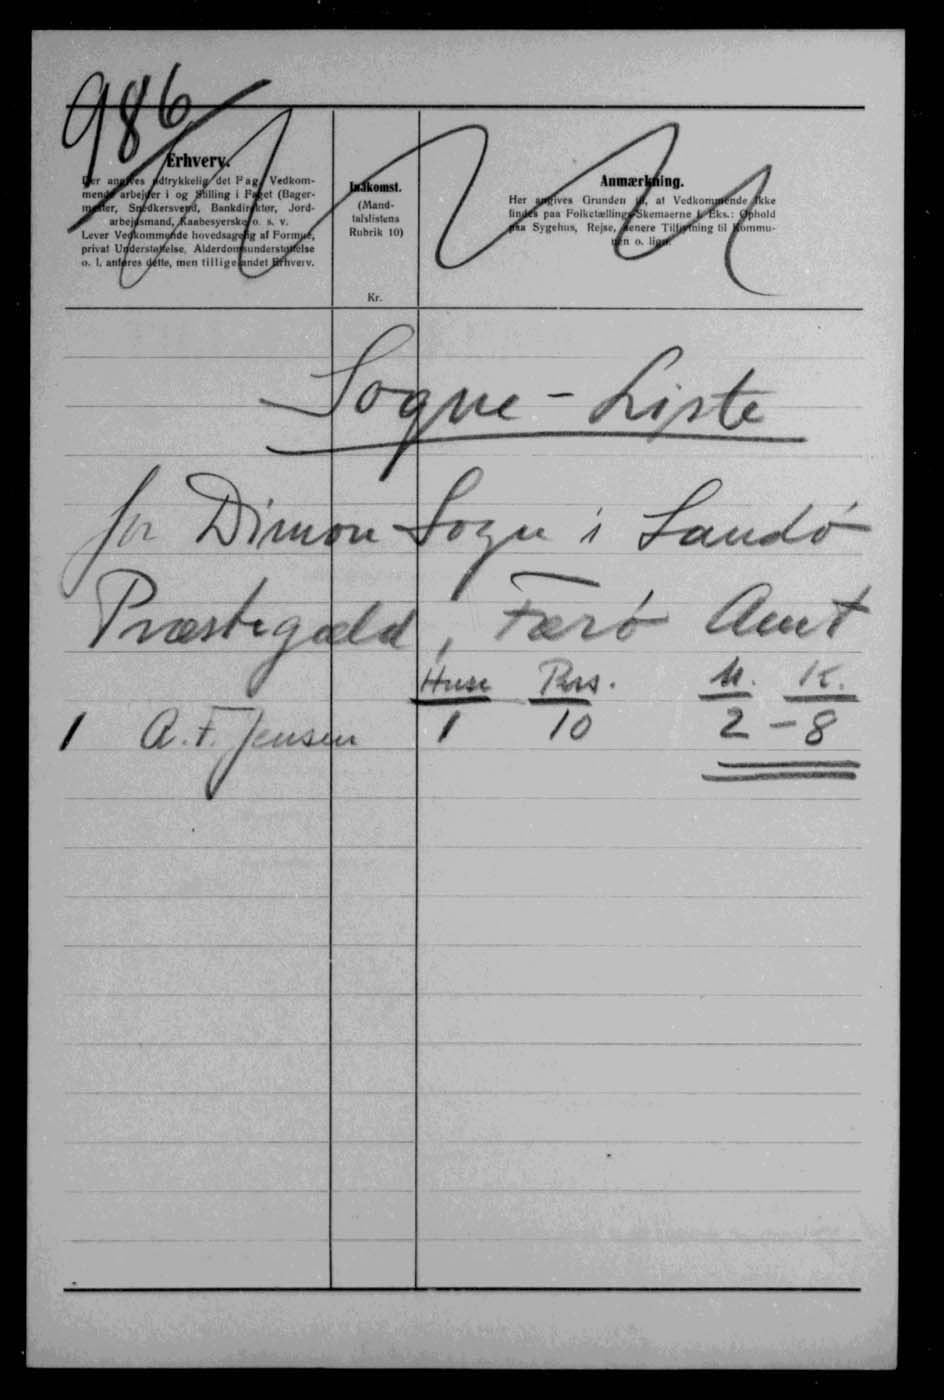 986
Erhverv.
Der angives udtrykkelig det Fag, Vedkom-
mende arbejder i og Stilling i Faget (Bager-
mester, Snedkersvend, Bankdirektør, Jord-
arbejdsmand, Kaabesyerske o. s. v.
Lever Vedkommende hovedsagelig af Formue,
privat Understøttelse, Alderdomsunderstøttelse
o. l. anføres dette, men tillige andet Erhverv.
Indkomst.
(Mand-
talslistens
Rubrik 10)
Kr.
Anmærkning.
Her angives Grunden til, at Vedkommende ikke
findes paa Folketællings-Skemaerne f. Eks.: Ophold
paa Sygehus, Rejse, senere Tilflytning til Kommu-
nen o. lign.
Sogne - Liste
for Dimon Sogn i Sandö
Præstegæld, Færö Amt
Huse Pers. M. K.
1 A. F. Jensen 1 10 2 - 8